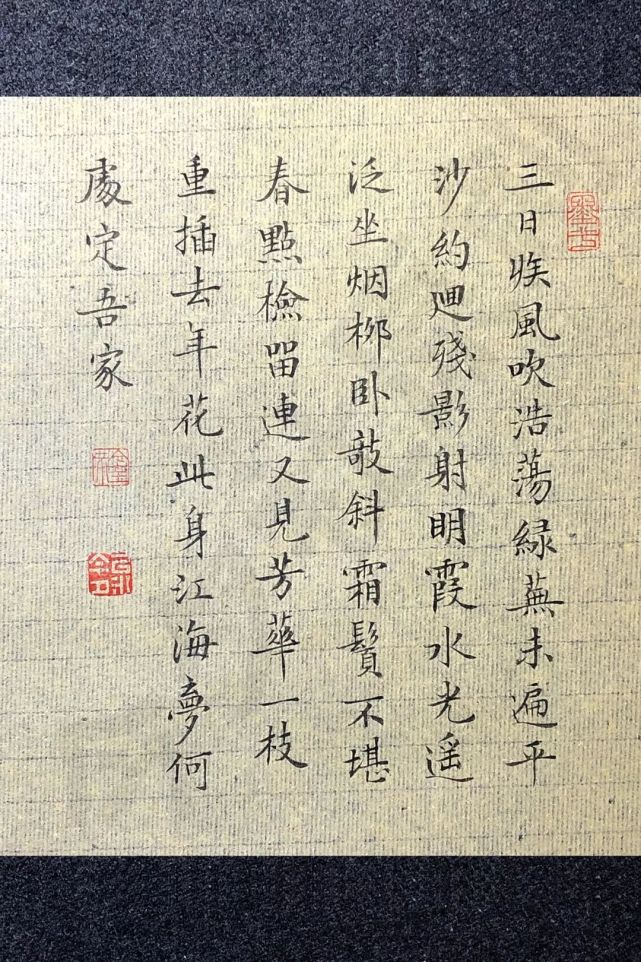 三日疾風吹浩蕩綠蕪未遍平
沙約迴殘影射明霞水光遥
泛坐烟柳卧敧斜霜鬢不堪
春點檢留連又見芳華一枝
重插去年花此身江海夢何
處定吾家